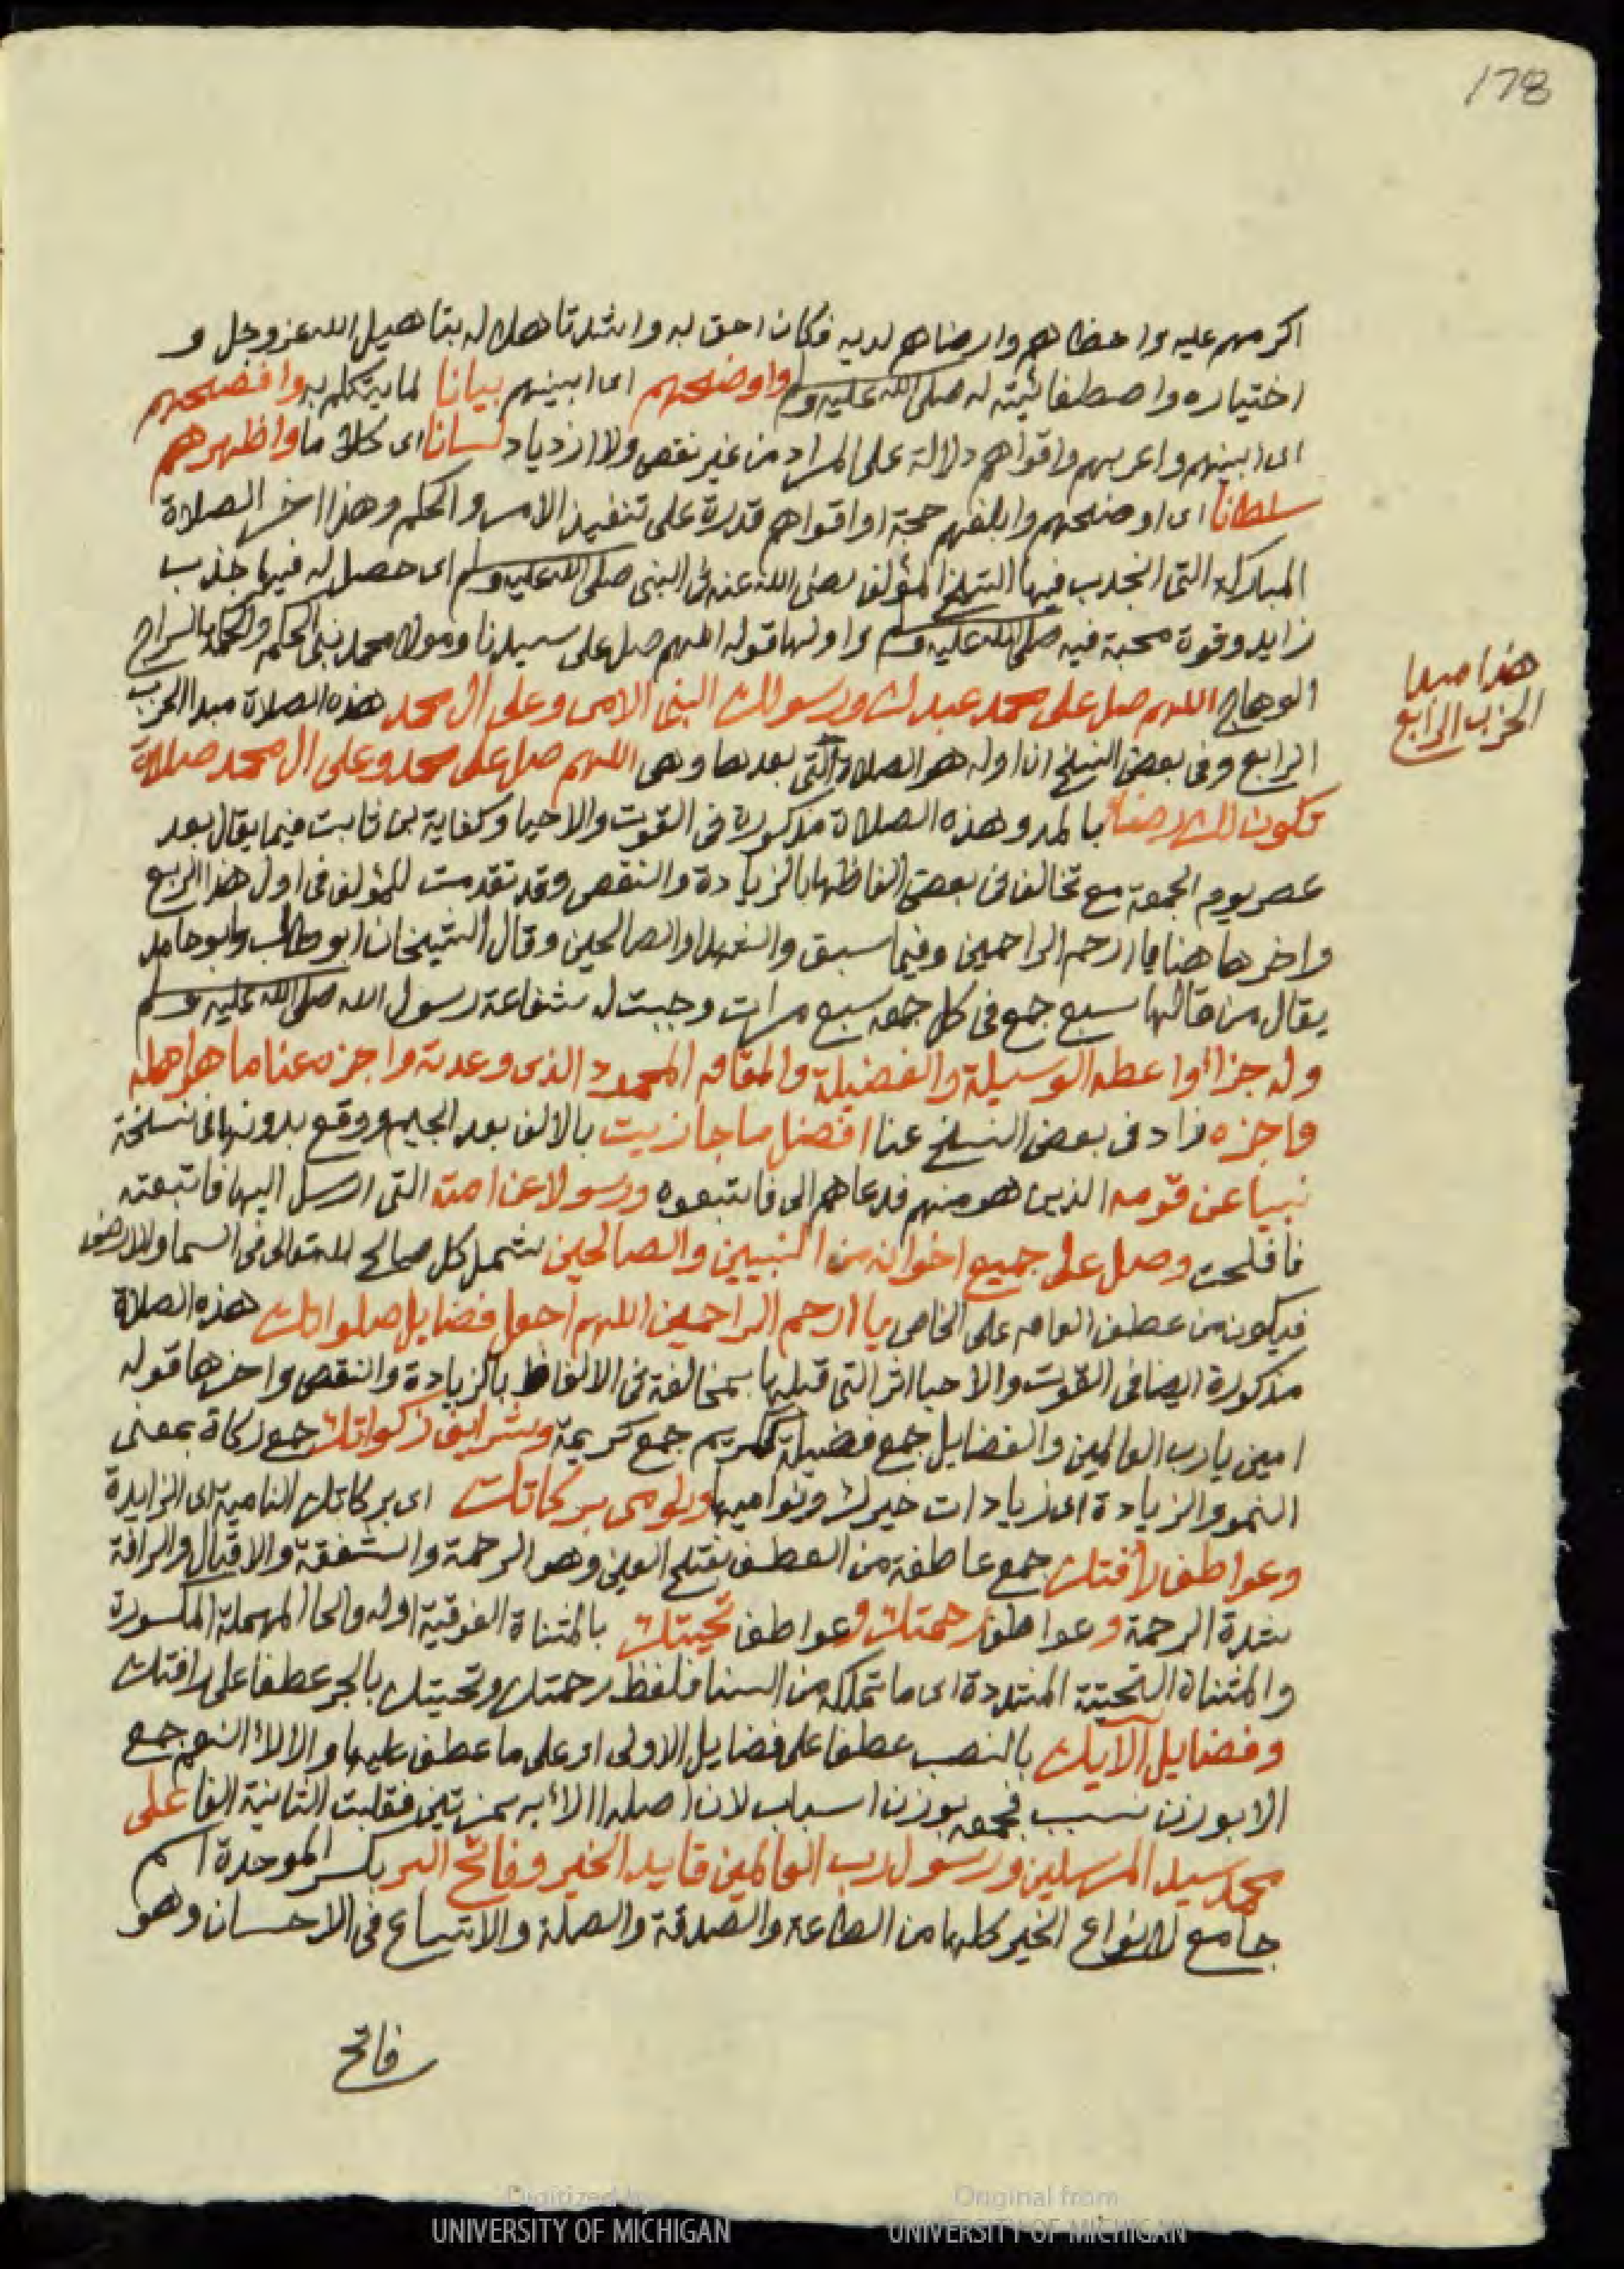 178
اكرمهم عليه واحظاهم وارضاهم لديه فكان احق له واشد تاهلا له بتاهيل الله عز وجل و
اختياره واصطفائيته له صلى الله عليه وسلم واوضحهم اى ابينهم بيانا لما يتكلم به وافصحهم
اى ابينهم واعربهم واقواهم دلالة على المراد من غير نقص ولا ازدياد لسانا اى كلاما واظهرهم
سلطانا اى اوضحهم وابلغهم حجة او اقواهم قدرة على تنفيذ الامر والحكم وهذا اخر الصلاة
المباركة التى انجذب فيها الشيخ المؤلف رضى الله عنه فى النبى صلى الله عليه وسلم اى حصل له فيها جذب
زايد وقوة محبة فيه صلى الله عليه وسلم واولها قوله اللهم صل على سيدنا ومولانا محمد نبى الحكم والحكمة السراج
الوهاج اللهم صل على محمد عبدك ورسولك النبى الامى وعلى ال محمد هذه الصلاة مبدا الحزب
الرابع وفى بعض النسخ ان اوله هو الصلاة التى بعدها وهى اللهم صل على محمد وعلى ال محمد صلاة
تكون لك رضاء بالمد وهذه الصلاة مذكورة فى القوت والاحيا وكفاية ابن ثابت فيما يقال بعد
عصر يوم الجمعة مع تخالف فى بعض الفاظها بالزيادة والنقص وقد تقدمت للمؤلف فى اول هذا الربع
واخرها هنا يا ارحم الراحمين وفيما سبق والشهدا والصالحين وقال الشيخان ابو طالب وابو حامد
يقال من قالها سبع جمع فى كل جمعه سبع مرات وجبت له شفاعة رسول الله صلى الله عليه وسلم
وله جزاً واعطه الوسيلة والفضيلة والمقام المحمود الذى وعدته واجزه عنا ما هو اهله
واجزه زاد فى بعض النسخ عنا افضل ما جازيت بالالف بعد الجيم ووقع بدونها فى نسخة
نبيا عن قومه الذين هو منهم فدعاهم الى فاتبعوه ورسولا عن امته التى ارسل اليها فاتبعته
فافلحت وصل على جميع اخوانه من النبيين والصالحين يشمل كل صالح لله تعالى فى السما والارض
فيكون من عطف العام على الخاص يا ارحم الراحمين اللهم اجعل فضايل صلواتك هذه الصلاة
مذكورة ايضا فى القوت والاحيا اثر التى قبلها بمخالفة فى الالفاظ بالزيادة والنقص واخرها قوله
امين يا رب العالمين والفضايل جمع فضيلة كريم جمع كريمة وشرايف زكواتك جمع زكاة بمعنى
النمو والزيادة اى زيادات خيرك ونواميها ونوامى بركاتك اى بركاتك النامية اى الزايدة
وعواطف رأفتك جمع عاطفة من العطف بفتح العين وهو الرحمة والشفقة والاقبال والرافة
شدة الرحمة وعواطف رحمتك وعواطف تحيتك بالمثناة الفوقية اوله والحا المهملة المكسورة
والمثناة التحتية المشددة اى ما تملكه من السنا فلفظ رحمتك وتحيتك بالجر عطفا على رافتك
وفضايل آلايك بالنصب عطفا على فضايل الاولى او على ما عطف عليها والالاء النعم جمع
الا بوزن سبب فجمعه بوزن اسباب لان اصله االاء بهمزتين فقلبت الثانية الفا على
محمد سيد المرسلين ورسول رب العالمين قايد الخير وفاتح البر بكسر الموحدة اسم
جامع لانواع الخير كلها من الطاعة والصدقة والصلة والاتساع فى الاحسان وهو
فاتح
هذا مبدا
الحزب الرابع
Digitized by
UNIVERSITY OF MICHIGAN
Original from
UNIVERSITY OF MICHIGAN